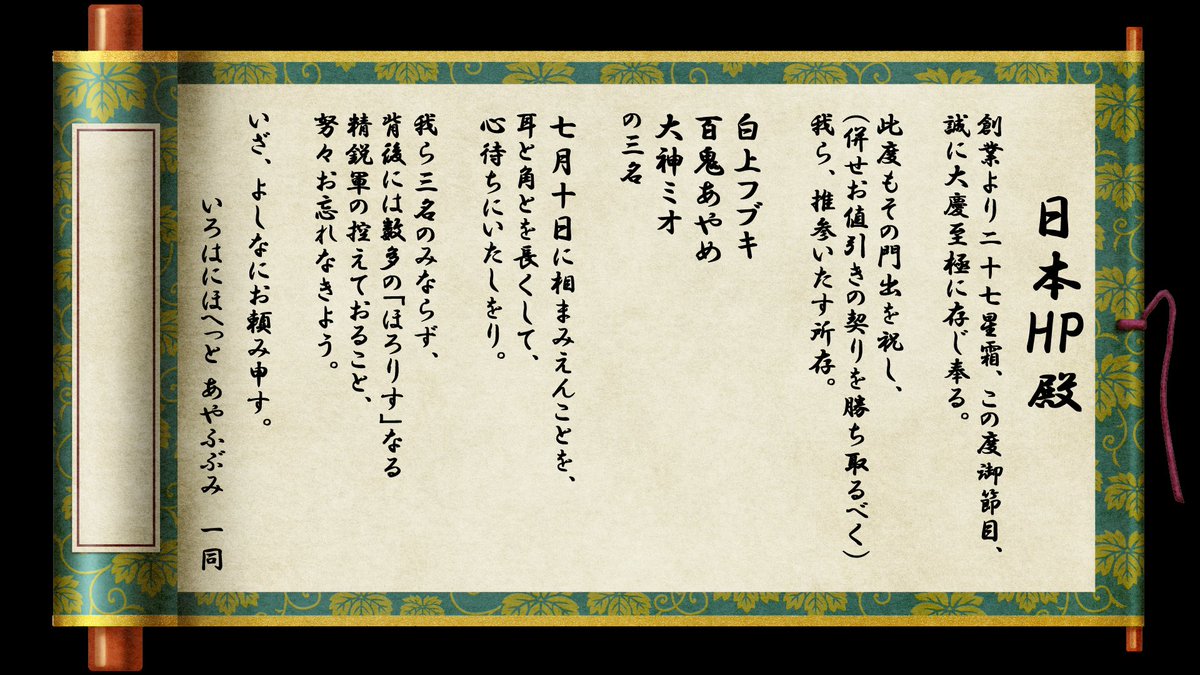 日本HP殿
創業より二十七星霜、この度御節目、
誠に大慶至極に存じ奉る。
此度もその門出を祝し、
(併せお値引きの契りを勝ち取るべく)
我ら、推参いたす所存。
白上フブキ
百鬼あやめ
大神ミオ
の三名
七月十日に相まみえんことを、
耳と角とを長くして、
心待ちにいたしをり。
我ら三名のみならず、
背後には数多の「ほろりす」なる
精鋭軍の控えておること、
努々お忘れなきよう。
いざ、よしなにお頼み申す。
いろはにほへっと あやふぶみ 一同